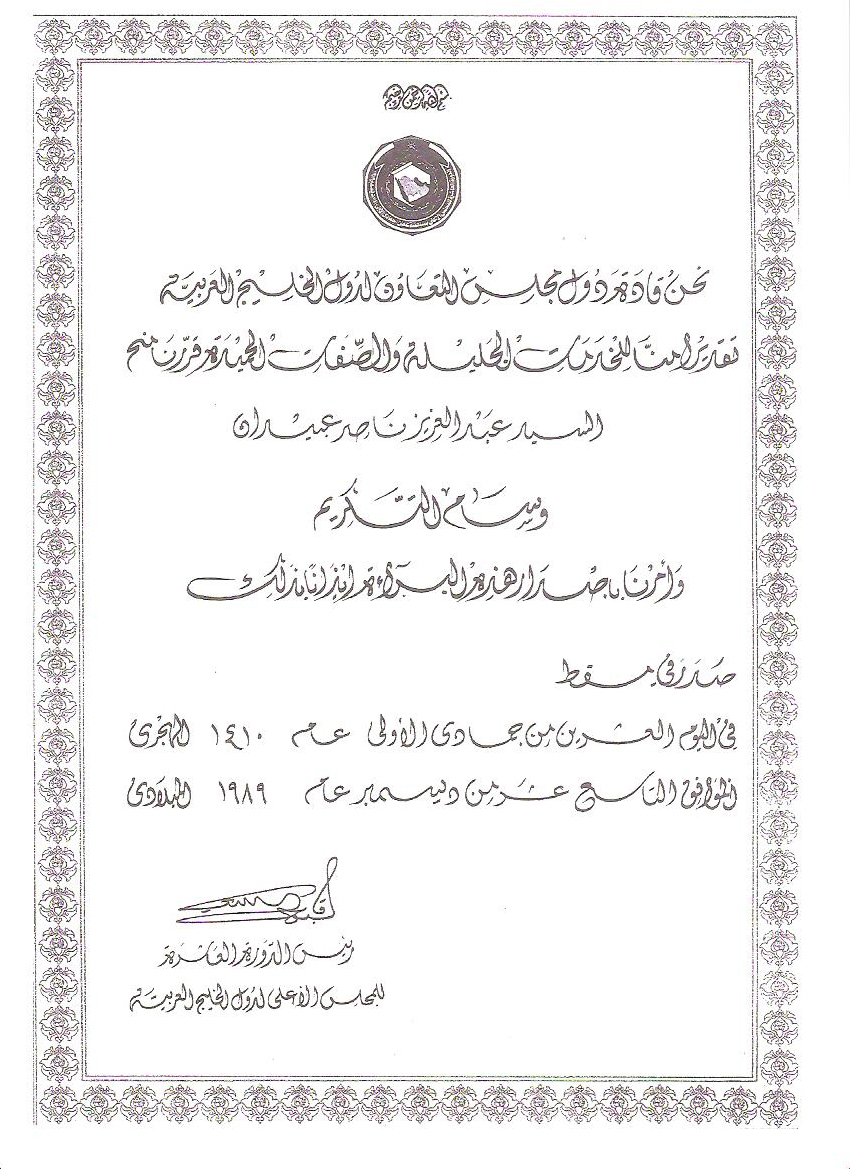 بسم الله الرحمن الرحيم
نحن قادة دول مجلس التعاون لدول الخليج العربية
تقديرا منا للخدمات الجليلة والصفات الحميدة قررنا منح
السيد عبد العزيز ناصر عبيدان
وسام التكريم
وأمرنا باصدار هذه البراءة ايذانا بذلك
صدر في مسقط
في اليوم العشرين من جمادى الأولى عام ١٤١٠ الهجرى
الموافق التاسع عشر من ديسمبر عام ١٩٨٩ الميلادى
رئيس الدورة العاشرة
للمجلس الأعلى لدول الخليج العربية